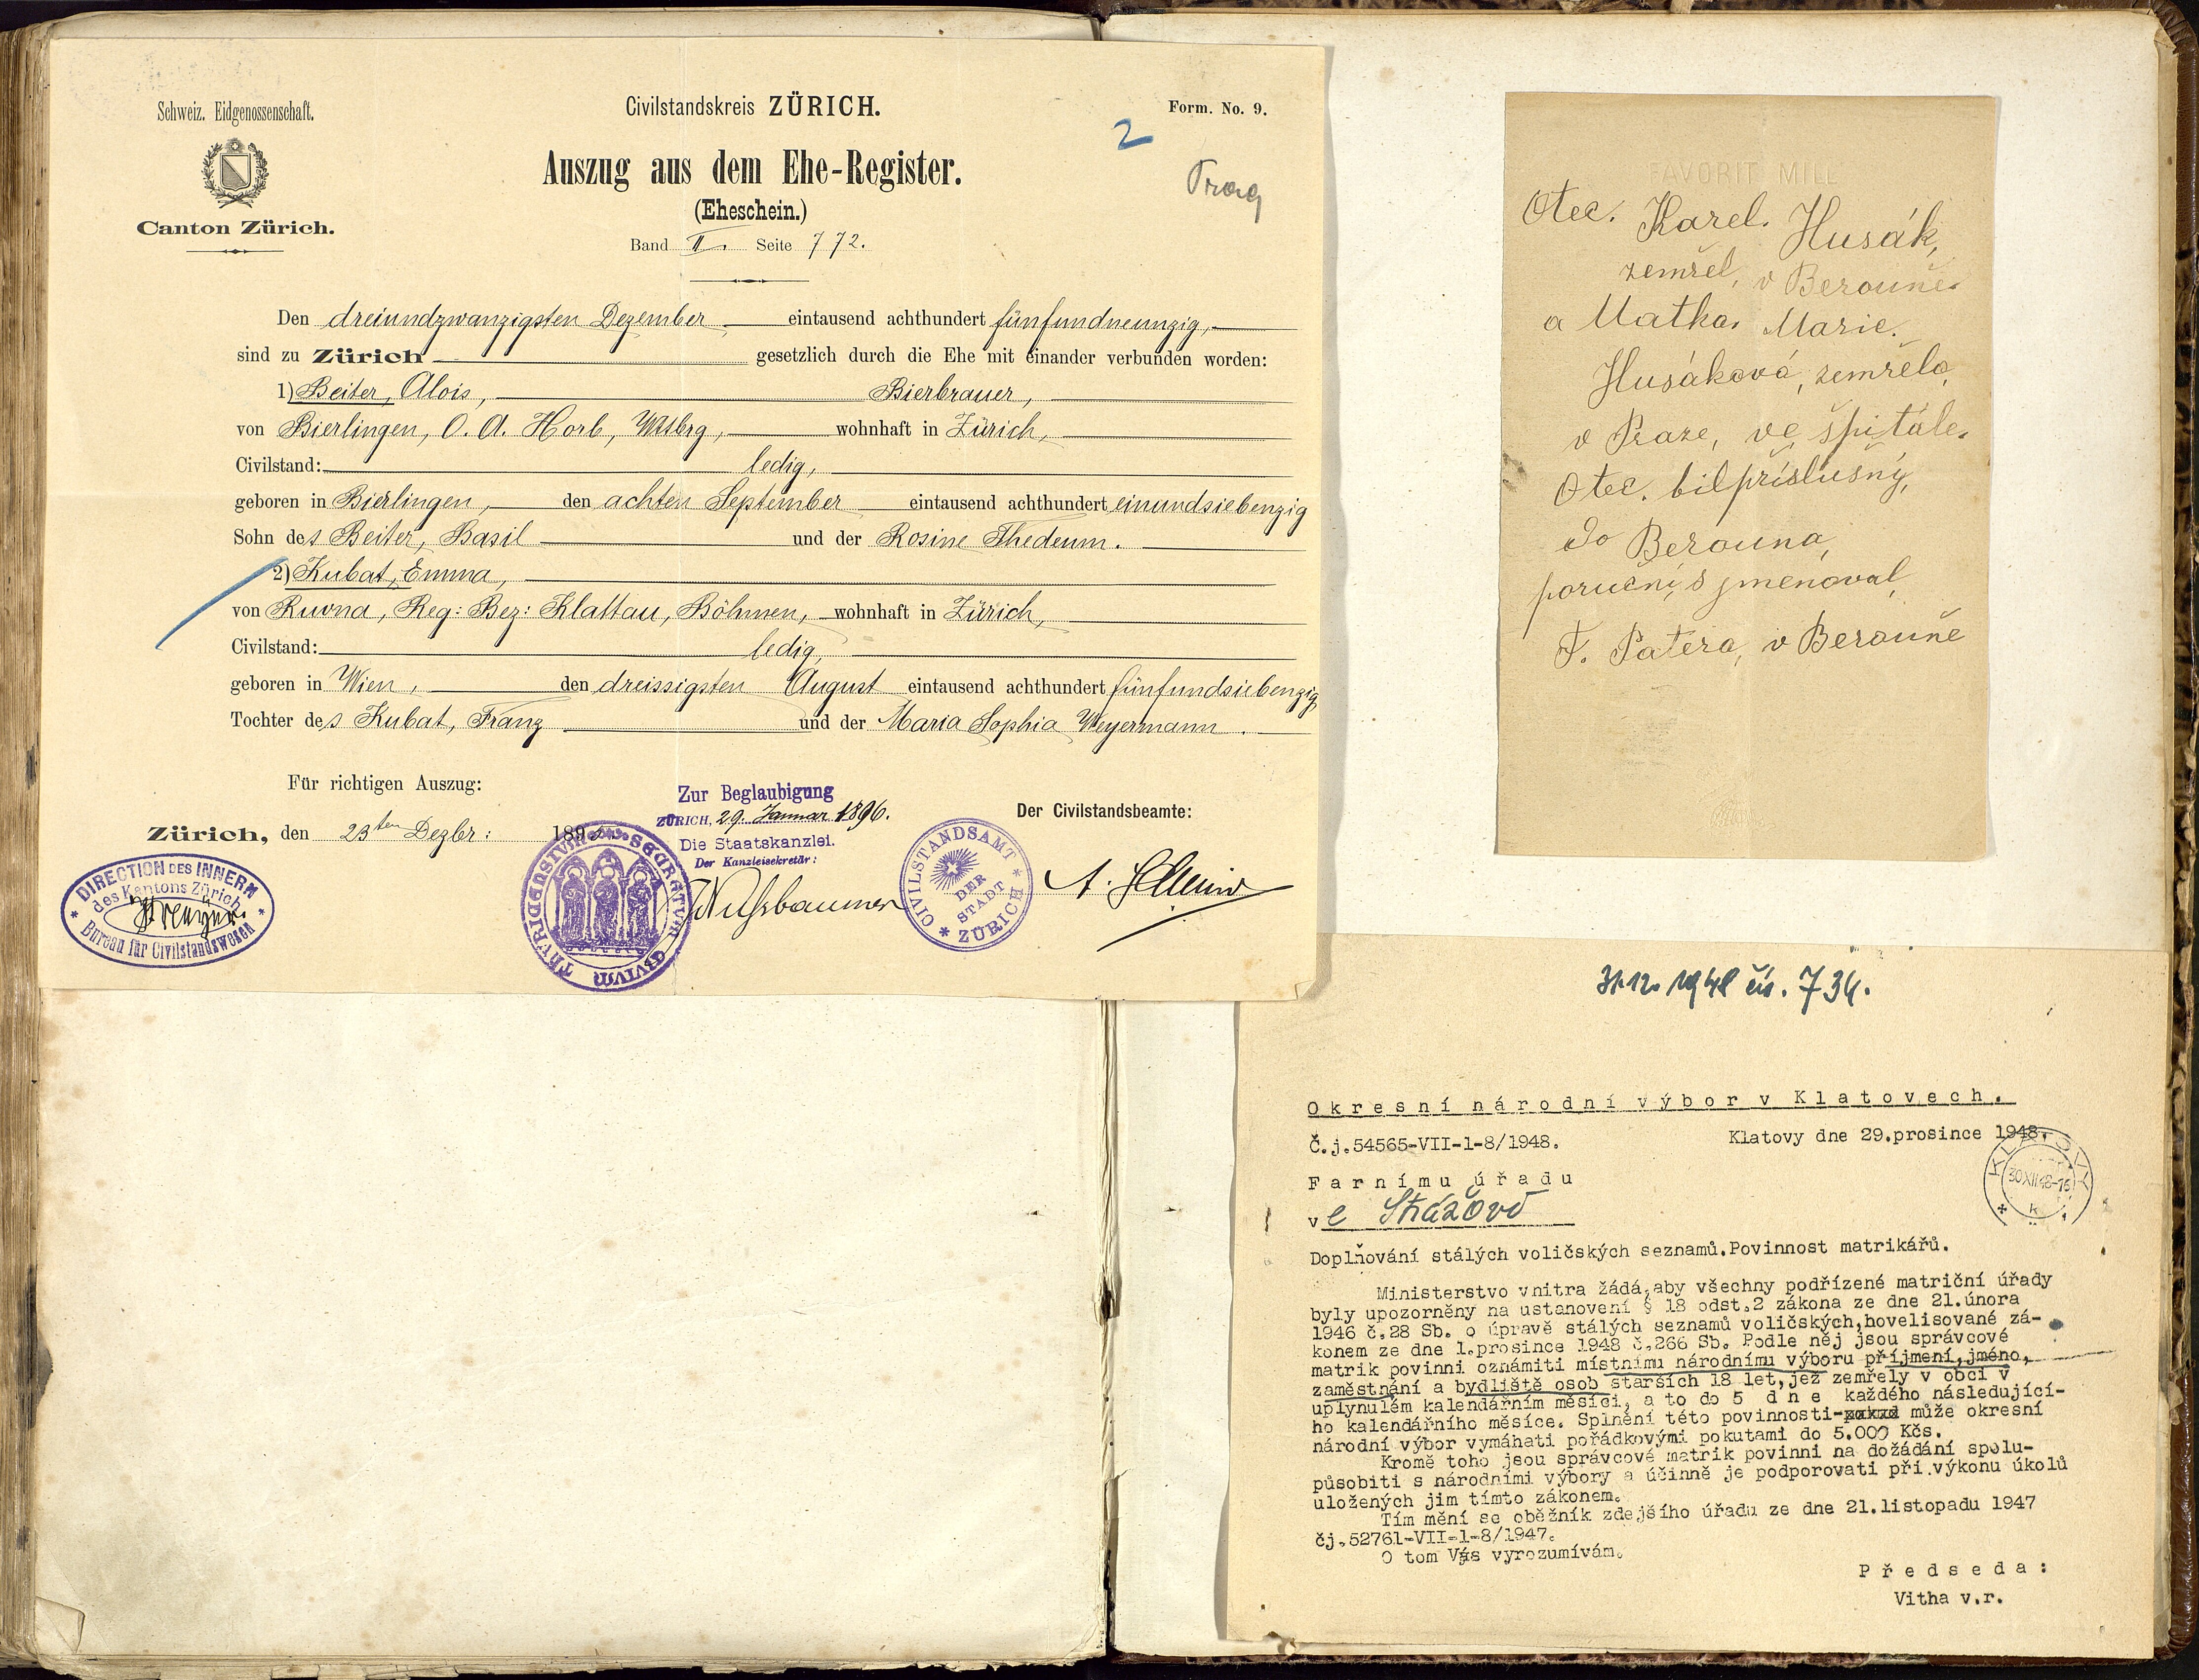 Schweiz. Eidgenossenschaft.
Canton Zürich.
Civilstandskreis ZÜRICH.
Form. No. 9.
2
Prag
Auszug aus dem Ehe-Register.
(Eheschein.)
Band II. Seite 772.
Den dreiundzwanzigsten Dezember eintausend achthundert fünfundneunzig,
sind zu Zürich gesetzlich durch die Ehe mit einander verbunden worden:
1) Beiter, Alois, Bierbrauer,
von Bierlingen, O. A. Horb, Wttbrg, wohnhaft in Zürich,
Civilstand: ledig,
geboren in Bierlingen, den achten September eintausend achthundert einundsiebenzig
Sohn des Beiter, Basil und der Rosine Thedeum.
2) Kubat, Emma,
von Ruvna, Reg: Bez: Klattau, Böhmen, wohnhaft in Zürich,
Civilstand: ledig,
geboren in Wien, den dreissigsten August eintausend achthundert fünfundsiebenzig
Tochter des Kubat, Franz und der Maria Sophia Weyermann.
Für richtigen Auszug:
Zürich, den 23ten Dezbr: 1895
Zur Beglaubigung
ZÜRICH, 29. Januar 1896.
Die Staatskanzlei.
Der Kanzleisekretär:
Nussbaumer
Der Civilstandsbeamte:
DIRECTION DES INNERN
des Kantons Zürich
Bureau für Civilstandswesen
SECRETUM CIVIUM THURICENSIUM
CIVILSTANDSAMT
DER
STADT
ZÜRICH
FAVORIT MILL
Otec. Karel. Husák,
zemřel, v Berouně.
a Matka. Marie.
Husáková, zemřela,
v Praze, ve špitále.
Otec. bil příslušný,
do Berouna,
poručnis jmenoval,
F. Patera, v Berouně
31.12. 1948 čís. 734.
Okresní národní výbor v Klatovech.
Č.j.54565-VII-1-8/1948.
Klatovy dne 29.prosince 1948.
KLATOVY
30.XII.48-16
k
Farnímu úřadu
v e Strážově
Doplňování stálých voličských seznamů.Povinnost matrikářů.
Ministerstvo vnitra žádá,aby všechny podřízené matriční úřady
byly upozorněny na ustanovení § 18 odst.2 zákona ze dne 21.února
1946 č.28 Sb. o úpravě stálých seznamů voličských,hovelisované zá-
konem ze dne 1.prosince 1948 č.266 Sb. Podle něj jsou správcové
matrik povinni oznámiti místnímu národnímu výboru příjmení,jméno,
zaměstnání a bydliště osob starších 18 let,jež zemřely v obci v
uplynulém kalendářním měsíci, a to do 5 dne každého následující-
ho kalendářního měsíce. Splnění této povinnosti- může okresní
národní výbor vymáhati pořádkovými pokutami do 5.000 Kčs.
Kromě toho jsou správcové matrik povinni na dožádání spolu-
působiti s národními výbory a účinně je podporovati při výkonu úkolů
uložených jim tímto zákonem.
Tím mění se oběžník zdejšího úřadu ze dne 21.listopadu 1947
čj.52761-VII-1-8/1947.
O tom Vás vyrozumívám.
Předseda:
Vitha v.r.